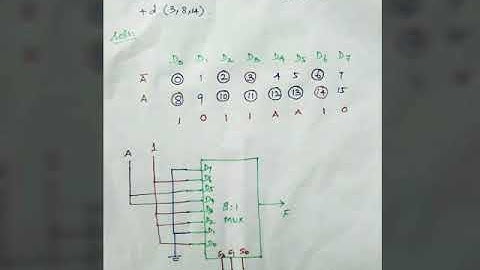 + d (3,8,14)
Soln:
D0 D1 D2 D3 D4 D5 D6 D7
Ā 0 1 2 3 4 5 6 7
A 8 9 10 11 12 13 14 15
1 0 1 1 A A 1 0
A 1
D7
D6
D5
D4
D3
D2
D1
D0
8:1
MUX
F
S2 S1 S0